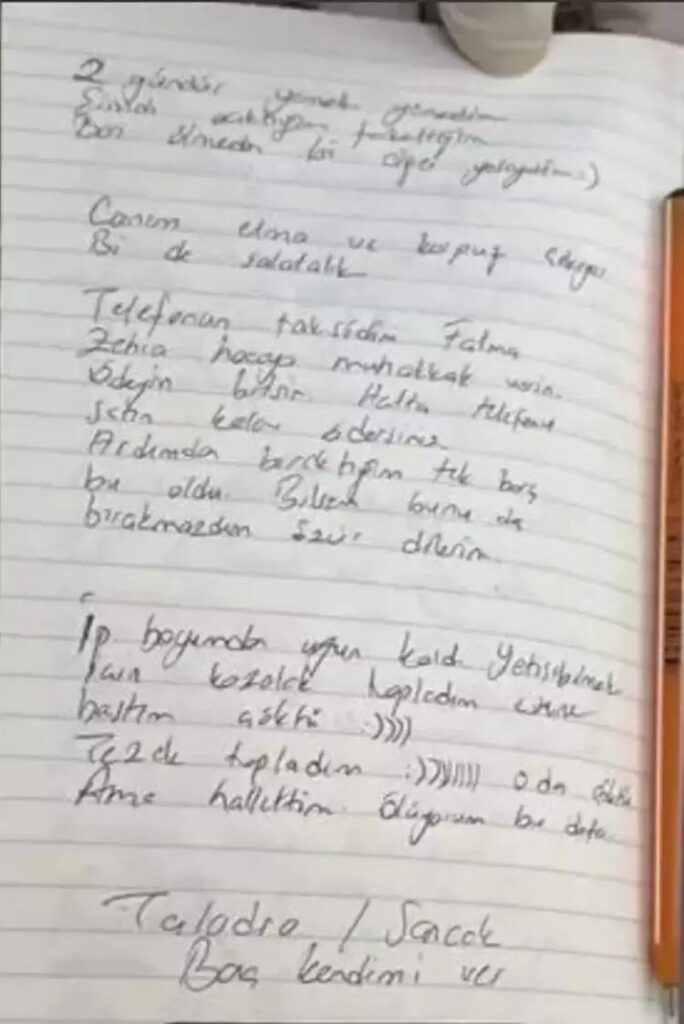 2 gündür yemek yemedim
Şimdi acıktığım
Ben ölmeden bi sigara
Canım elma ve karpuz çekiyor
Bi de salatalık
Telefonun taksidini Fatma
Zehra hocaya muhakkak verin.
Ödeyin bitsin. Hatta telefonu
satın kalanı ödersiniz
Ardımda bıraktığım tek borç
bu oldu. Bilsem bunu da
bırakmazdım özür dilerim.
İp boyumdan uzun kaldı Yetişebilmek
için kozalak topladım üstüne
bastım çöktü :))))
Tezek topladım :)))))))) o da çöktü
Ama hallettim. Ölüyorum bu defa.
Taladro / Sancak
Baş kendimi ver